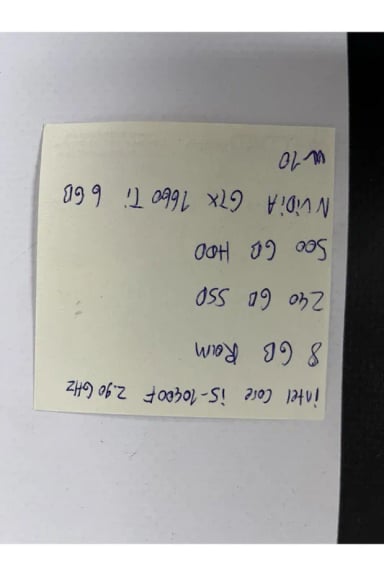 intel Core i5-10400F 2.90 GHz
8 GB Ram
240 GB SSD
500 GB HDD
NViDiA GTX 1660 Ti 6 GB
W10